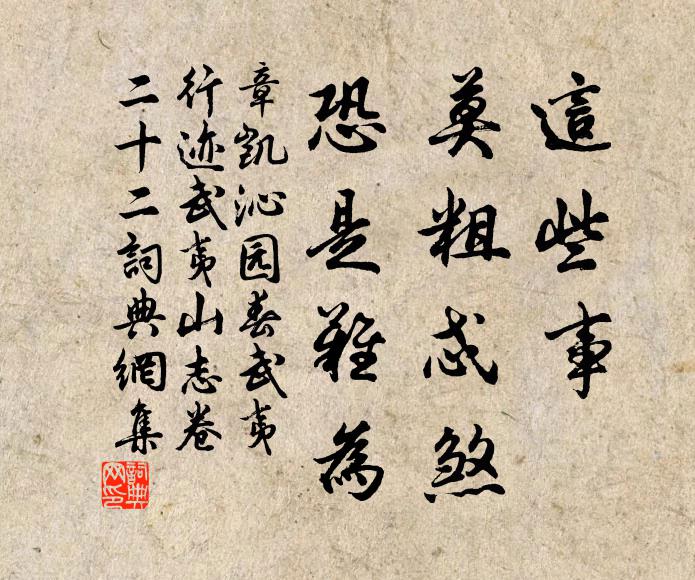 這些事
莫粗忒煞
恐是難為
章凱沁园春武夷
行迹武夷山志卷
二十二詞典網集
詞典网印